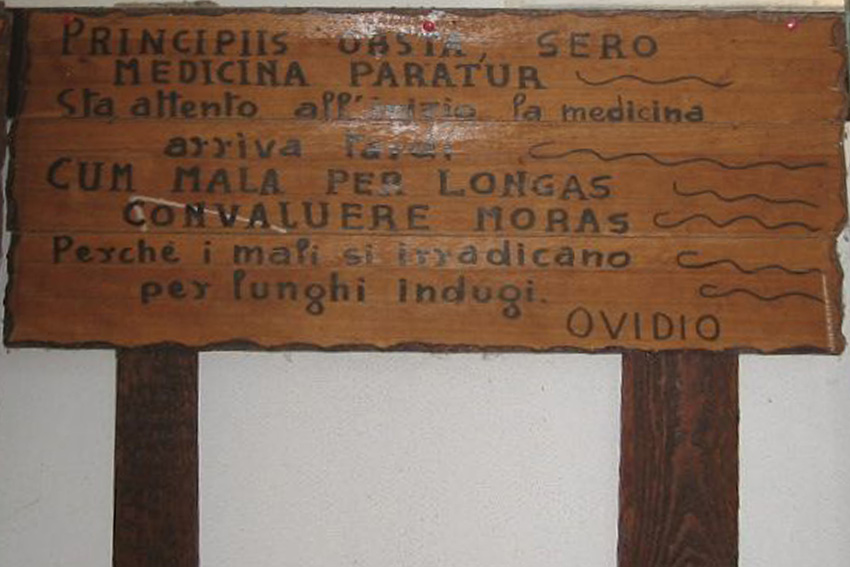 PRINCIPIIS OBSTA, SERO
MEDICINA PARATUR
Sta attento all'inizio la medicina
arriva tardi
CUM MALA PER LONGAS
CONVALUERE MORAS
Perché i mali si irradicano
per lunghi indugi.
OVIDIO